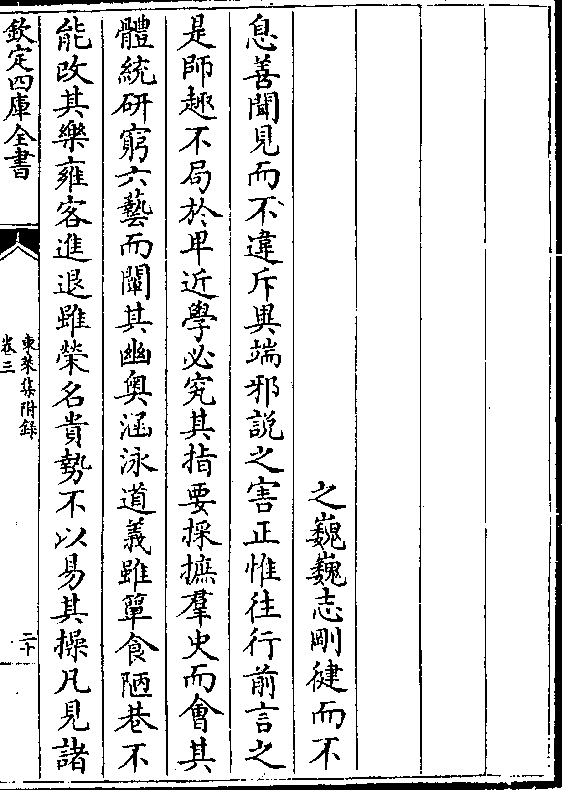 之巍巍志剛健而不
息善聞見而不違斥異端邪說之害正惟往行前言之
是師趣不局於卑近學必究其指要採摭羣史而會其
體統研窮六藝而闡其幽奧涵泳道義雖簞食陋巷不
能改其樂雍容進退雖榮名貴勢不以易其操凡見諸
欽定四庫全書
東萊集附錄
卷三
二十